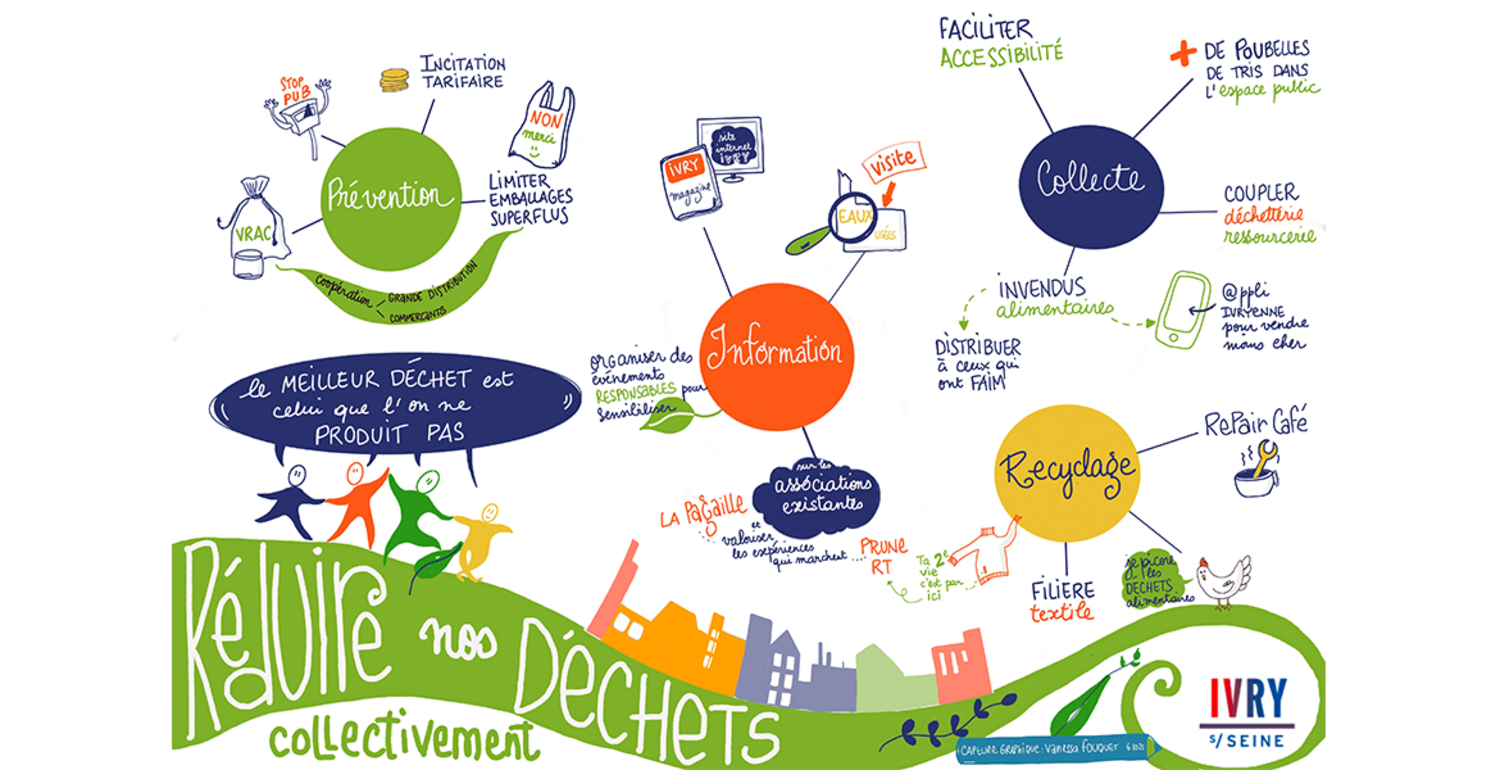 STOP
PUB
INCITATION
TARIFAIRE
NON
merci
Prévention
LIMITER
EMBALLAGES
SUPERFLUS
VRAC
coopération
GRANDE DISTRIBUTION
COMMERÇANTS
le MEILLEUR DÉCHET est
celui que l'on ne
PRODUIT PAS
site
internet
iVRY
iVRY
magazine
visite
EAUX
USÉES
Information
ORGaniser des
événements
RESPONSABLES pour
Sensibiliser
sur les
associations
existantes
LA PAGAILLE
et
valoriser
les expériences
qui marchent ...
PRUNE
RT
FACILITER
ACCESSIBILITÉ
+ DE POUBELLES
DE TRIS DANS
L'espace public
Collecte
COUPLER
déchetterie
ressourcerie
INVENDUS
alimentaires
DISTRIBUER
à ceux qui
ont FAIM
@ppli
IVRYENNE
pour vendre
moins cher
Recyclage
RePair Café
Ta 2e
vie
c'est par
ici
FILIERE
textile
je picore
les
DECHETS
alimentaires
Réduire nos DÉCHETS
collectivement
CAPTURE GRAPHIQUE : Vanessa FOUQUET
IVRY
S/ SEINE